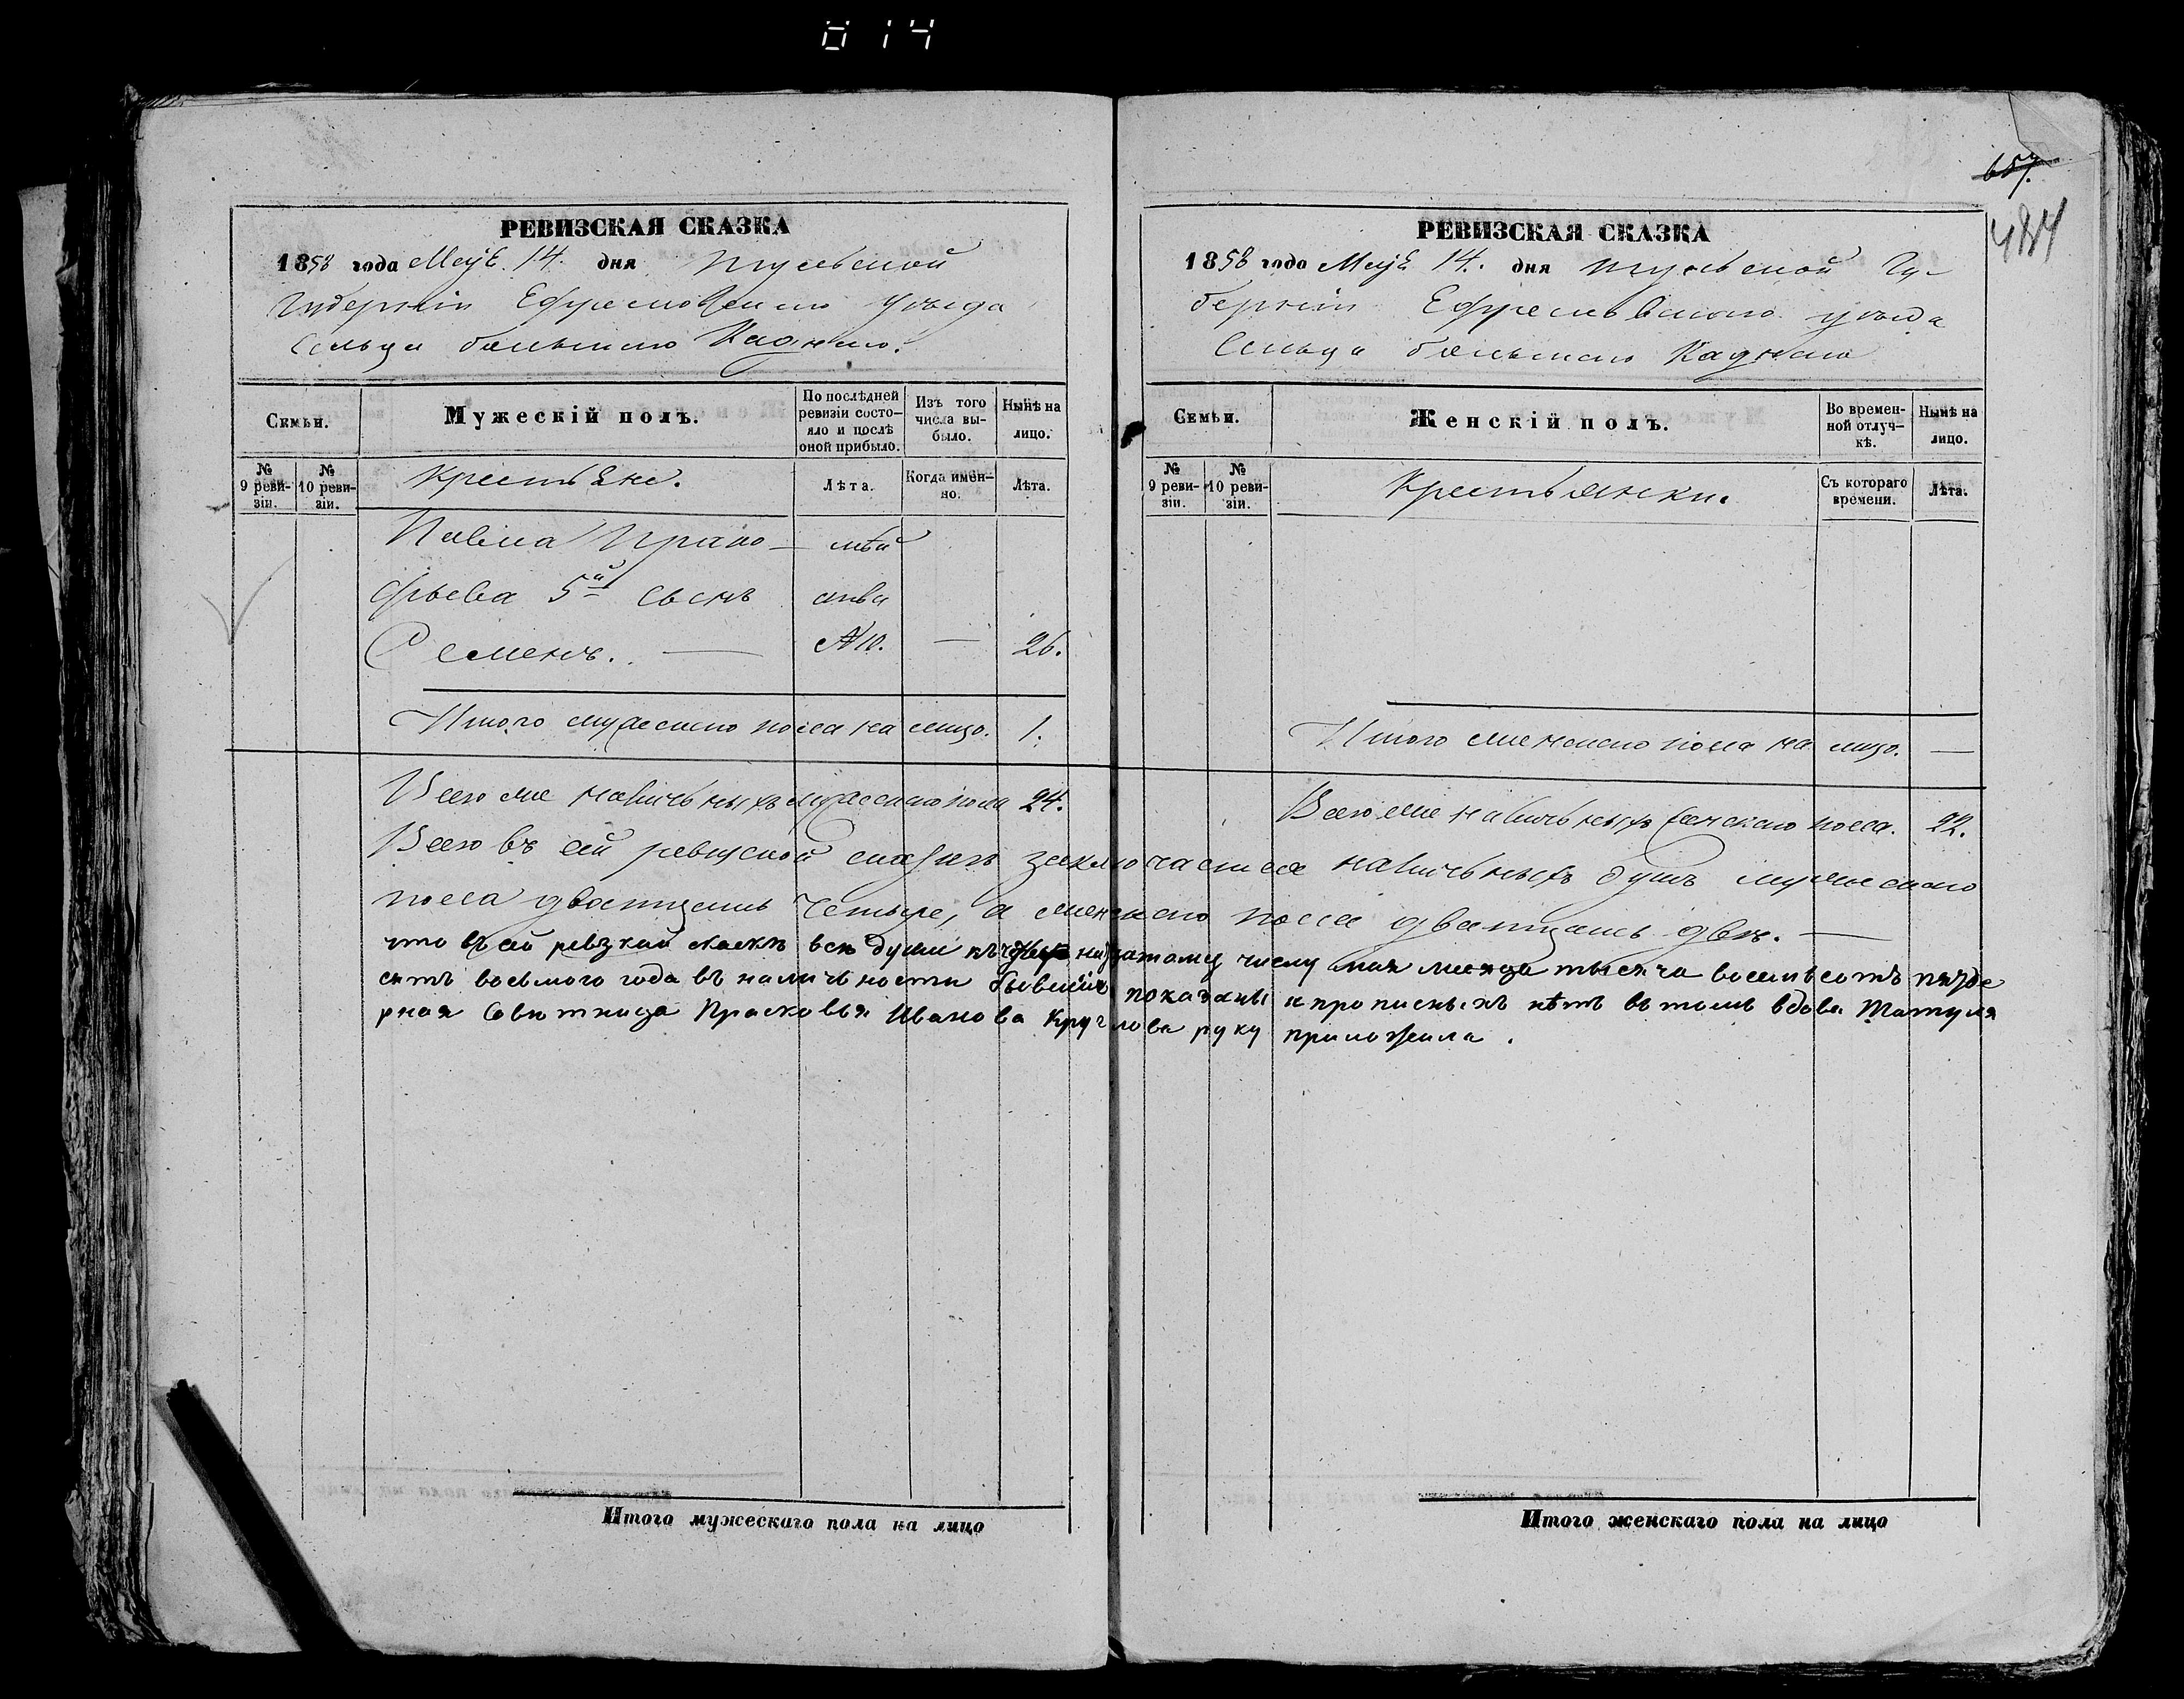 014
657.
484
РЕВИЗСКАЯ СКАЗКА
1858 года Маія 14. дня Тульской
Губерніи Ефремовскаго уѣзда
Сельца большаго Каднаго.
Семьи.
Мужескій полъ.
По послѣдней ревизіи состо-
яло и послѣ оной прибыло.
Изъ того числа вы-
было.
Нынѣ на лицо.
№ 9 реви-
зіи.
№ 10 реви-
зіи.
Крестьяне.
Лѣта.
Когда имен-
но.
Лѣта.
Павла Прако-
фьева 5й сынъ
Семенъ. — №10. — 26.
Итого мужескаго пола на лицо. 1.
РЕВИЗСКАЯ СКАЗКА
1858 года Маія 14. дня Тульской Гу-
берніи Ефремовскаго уѣзда
Сельца большаго Каднаго
Семьи.
Женскій полъ.
Во времен-
ной отлуч-
кѣ.
Нынѣ на лицо.
№ 9 реви-
зіи.
№ 10 реви-
зіи.
Крестьянки.
Съ котораго времени.
Лѣта.
Итого женскаго пола на лицо. —
Всего же наличныхъ мужескаго пола 24.
Всего же наличныхъ женскаго пола. 22.
Всего въ сей ревизской сказкѣ заключается наличныхъ душъ мужескаго
пола дватцать четыре, а женскаго пола дватцать двѣ. —
что въ сей ревзкай скаскѣ всѣ души къ числу мая месяца тысяча восемьсотъ пядде
сятъ восьмого года въ наличности бывшия показаны и прописныхъ нѣтъ въ томъ вдова Татуля
рная Совѣтница Прасковья Иванова Круглова руку приложила.
Итого мужескаго пола на лицо
Итого женскаго пола на лицо